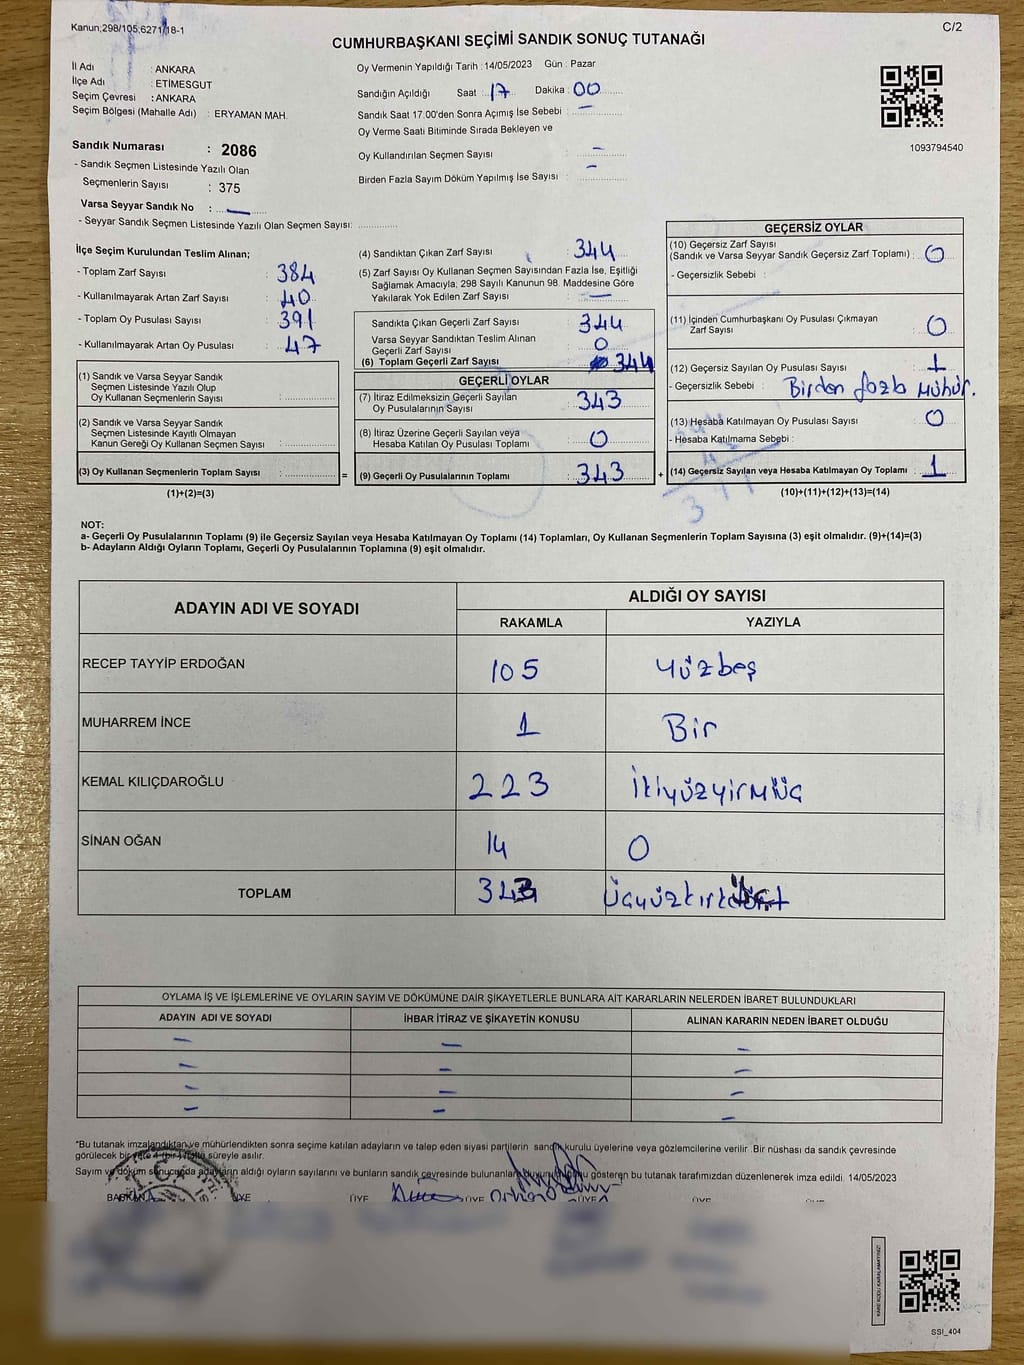 Kanun;298/105,6271/18-1
C/2
CUMHURBAŞKANI SEÇİMİ SANDIK SONUÇ TUTANAĞI
İl Adı : ANKARA
İlçe Adı : ETİMESGUT
Seçim Çevresi : ANKARA
Seçim Bölgesi (Mahalle Adı) : ERYAMAN MAH.
Oy Vermenin Yapıldığı Tarih : 14/05/2023 Gün : Pazar
Sandığın Açıldığı Saat : 17 Dakika : 00
Sandık Saat 17.00'den Sonra Açımış İse Sebebi : —
Oy Verme Saati Bitiminde Sırada Bekleyen ve
Oy Kullandırılan Seçmen Sayısı : —
Birden Fazla Sayım Döküm Yapılmış İse Sayısı : —
1093794540
Sandık Numarası : 2086
- Sandık Seçmen Listesinde Yazılı Olan
Seçmenlerin Sayısı : 375
Varsa Seyyar Sandık No : —
- Seyyar Sandık Seçmen Listesinde Yazılı Olan Seçmen Sayısı:
İlçe Seçim Kurulundan Teslim Alınan;
- Toplam Zarf Sayısı : 384
- Kullanılmayarak Artan Zarf Sayısı : 40
- Toplam Oy Pusulası Sayısı : 391
- Kullanılmayarak Artan Oy Pusulası : 47
(1) Sandık ve Varsa Seyyar Sandık
Seçmen Listesinde Yazılı Olup
Oy Kullanan Seçmenlerin Sayısı :
(2) Sandık ve Varsa Seyyar Sandık
Seçmen Listesinde Kayıtlı Olmayan
Kanun Gereği Oy Kullanan Seçmen Sayısı :
(3) Oy Kullanan Seçmenlerin Toplam Sayısı : =
(1)+(2)=(3)
(4) Sandıktan Çıkan Zarf Sayısı 344
(5) Zarf Sayısı Oy Kullanan Seçmen Sayısından Fazla İse, Eşitliği
Sağlamak Amacıyla; 298 Sayılı Kanunun 98. Maddesine Göre
Yakılarak Yok Edilen Zarf Sayısı : —
Sandıkta Çıkan Geçerli Zarf Sayısı : 344
Varsa Seyyar Sandıktan Teslim Alınan
Geçerli Zarf Sayısı : 0
(6) Toplam Geçerli Zarf Sayısı 344
GEÇERLİ OYLAR
(7) İtiraz Edilmeksizin Geçerli Sayılan
Oy Pusulalarının Sayısı : 343
(8) İtiraz Üzerine Geçerli Sayılan veya
Hesaba Katılan Oy Pusulası Toplamı : 0
(9) Geçerli Oy Pusulalarının Toplamı : 343 +
GEÇERSİZ OYLAR
(10) Geçersiz Zarf Sayısı
(Sandık ve Varsa Seyyar Sandık Geçersiz Zarf Toplamı) : 0
- Geçersizlik Sebebi :
(11) İçinden Cumhurbaşkanı Oy Pusulası Çıkmayan
Zarf Sayısı : 0
(12) Geçersiz Sayılan Oy Pusulası Sayısı : 1
- Geçersizlik Sebebi : Birden fazla mühür.
(13) Hesaba Katılmayan Oy Pusulası Sayısı : 0
- Hesaba Katılmama Sebebi :
(14) Geçersiz Sayılan veya Hesaba Katılmayan Oy Toplamı : 1
(10)+(11)+(12)+(13)=(14)
NOT:
a- Geçerli Oy Pusulalarının Toplamı (9) ile Geçersiz Sayılan veya Hesaba Katılmayan Oy Toplamı (14) Toplamları, Oy Kullanan Seçmenlerin Toplam Sayısına (3) eşit olmalıdır. (9)+(14)=(3)
b- Adayların Aldığı Oyların Toplamı, Geçerli Oy Pusulalarının Toplamına (9) eşit olmalıdır.
ADAYIN ADI VE SOYADI
ALDIĞI OY SAYISI
RAKAMLA YAZIYLA
RECEP TAYYİP ERDOĞAN 105 Yüzbeş
MUHARREM İNCE 1 Bir
KEMAL KILIÇDAROĞLU 223 İkiyüzyirmiüç
SİNAN OĞAN 14 0
TOPLAM 343
OYLAMA İŞ VE İŞLEMLERİNE VE OYLARIN SAYIM VE DÖKÜMÜNE DAİR ŞİKAYETLERLE BUNLARA AİT KARARLARIN NELERDEN İBARET BULUNDUKLARI
ADAYIN ADI VE SOYADI İHBAR İTİRAZ VE ŞİKAYETİN KONUSU ALINAN KARARIN NEDEN İBARET OLDUĞU
— — —
— — —
— — —
— — —
*Bu tutanak imzalandıktan ve mühürlendikten sonra seçime katılan adayların ve talep eden siyasi partilerin sandık kurulu üyelerine veya gözlemcilerine verilir. Bir nüshası da sandık çevresinde
görülecek bir yere süreyle asılır.
Sayım ve döküm sonucunda adayların aldığı oyların sayılarını ve bunların sandık çevresinde bulunanlara gösteren bu tutanak tarafımızdan düzenlenerek imza edildi. 14/05/2023
BAŞKAN ÜYE ÜYE ÜYE ÜYE ÜYE
SSI_404